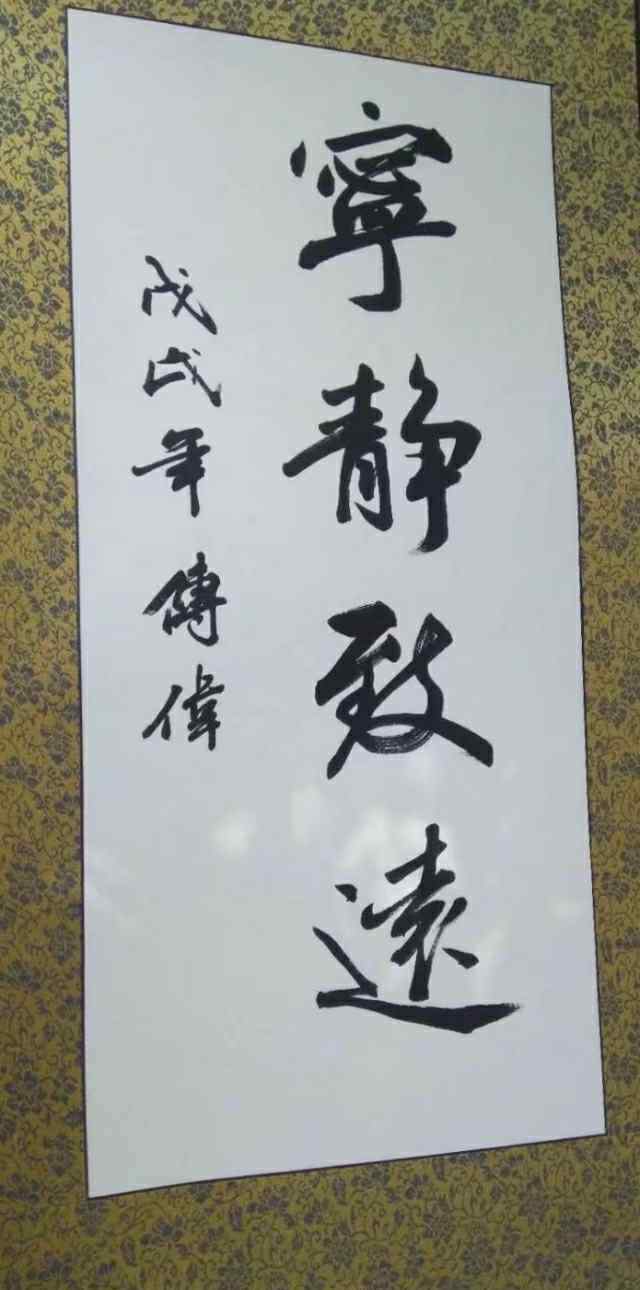 寧靜致遠
戊戌年 傅偉